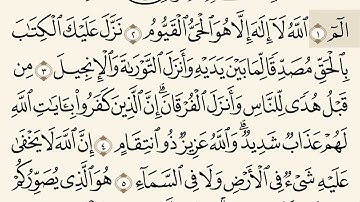 الٓمٓ ١ ٱللَّهُ لَآ إِلَٰهَ إِلَّا هُوَ ٱلْحَىُّ ٱلْقَيُّومُ ٢ نَزَّلَ عَلَيْكَ ٱلْكِتَٰبَ
بِٱلْحَقِّ مُصَدِّقًا لِّمَا بَيْنَ يَدَيْهِ وَأَنزَلَ ٱلتَّوْرَىٰةَ وَٱلْإِنجِيلَ ٣ مِن
قَبْلُ هُدًى لِّلنَّاسِ وَأَنزَلَ ٱلْفُرْقَانَ ۗ إِنَّ ٱلَّذِينَ كَفَرُوا۟ بِـَٔايَٰتِ ٱللَّهِ
لَهُمْ عَذَابٌ شَدِيدٌ ۗ وَٱللَّهُ عَزِيزٌ ذُو ٱنتِقَامٍ ٤ إِنَّ ٱللَّهَ لَا يَخْفَىٰ
عَلَيْهِ شَىْءٌ فِى ٱلْأَرْضِ وَلَا فِى ٱلسَّمَآءِ ٥ هُوَ ٱلَّذِى يُصَوِّرُكُمْ